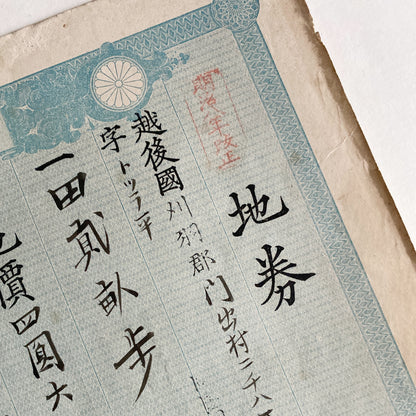 明治八年改正
地券
越後國刈羽郡門出村二千八
字トツラ平
一田貳畝歩
地價四圓六